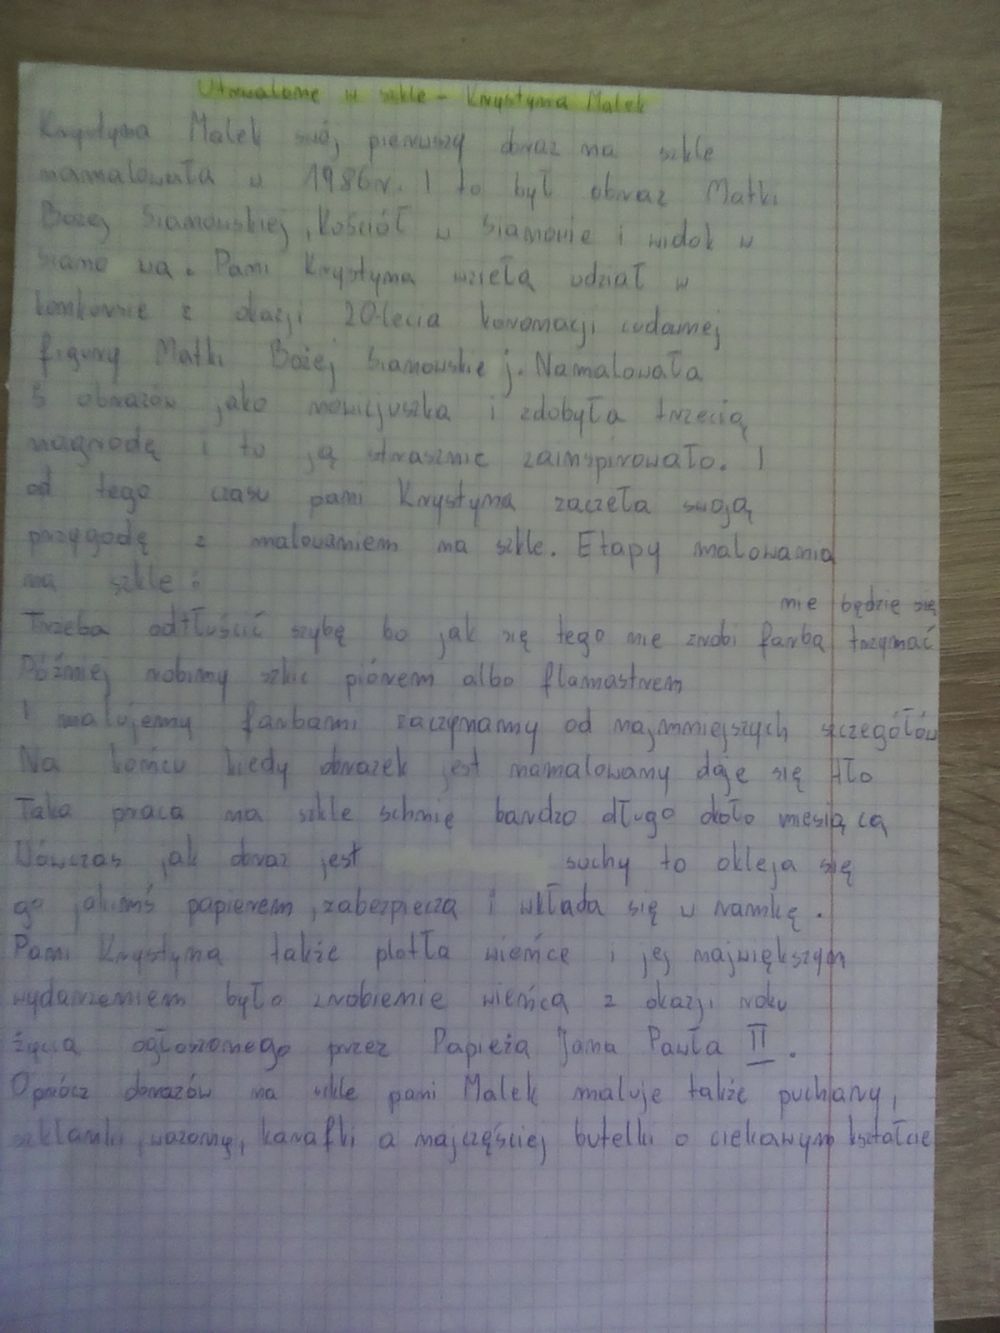 Utrwalone w szkle - Krystyna Malek
Krystyna Malek swój pierwszy obraz na szkle
namalowała w 1986r. I to był obraz Matki
Bożej Sianowskiej, kościół w Sianowie i widok w
Siano wa. Pani Krystyna wzieła udział w
konkursie z okazji 20-lecia koronacji cudownej
figury Matki Bożej Sianowskie j. Namalowała
5 obrazów jako nowicjuszka i zdobyła trzecią
nagrodę i to ją strasznie zainspirowało. I
od tego czasu pani Krystyna zaczeła swoją
przygodę z malowaniem na szkle. Etapy malowania
na szkle:
nie będzie się
Trzeba odtłuścić szybę bo jak się tego nie zrobi farba trzymać
Później robimy szkic piórem albo flamastrem
I malujemy farbami zaczynamy od najmniejszych szczegółów
Na końcu kiedy obrazek jest namalowany daje się tło
Taka praca na szkle schnie bardzo długo około miesiąca
Wówczas jak obraz jest suchy to okleja się
go jakimś papierem, zabezpiecza i wkłada się w ramkę.
Pani Krystyna także plotła wieńce i jej największym
wydarzeniem było zrobienie wieńca z okazji roku
życia ogłoszonego przez Papieża Jana Pawła II.
Oprócz obrazów na szkle pani Malek maluje także puchary,
szklanki, wazony, karafki a najczęściej butelki o ciekawym kształcie